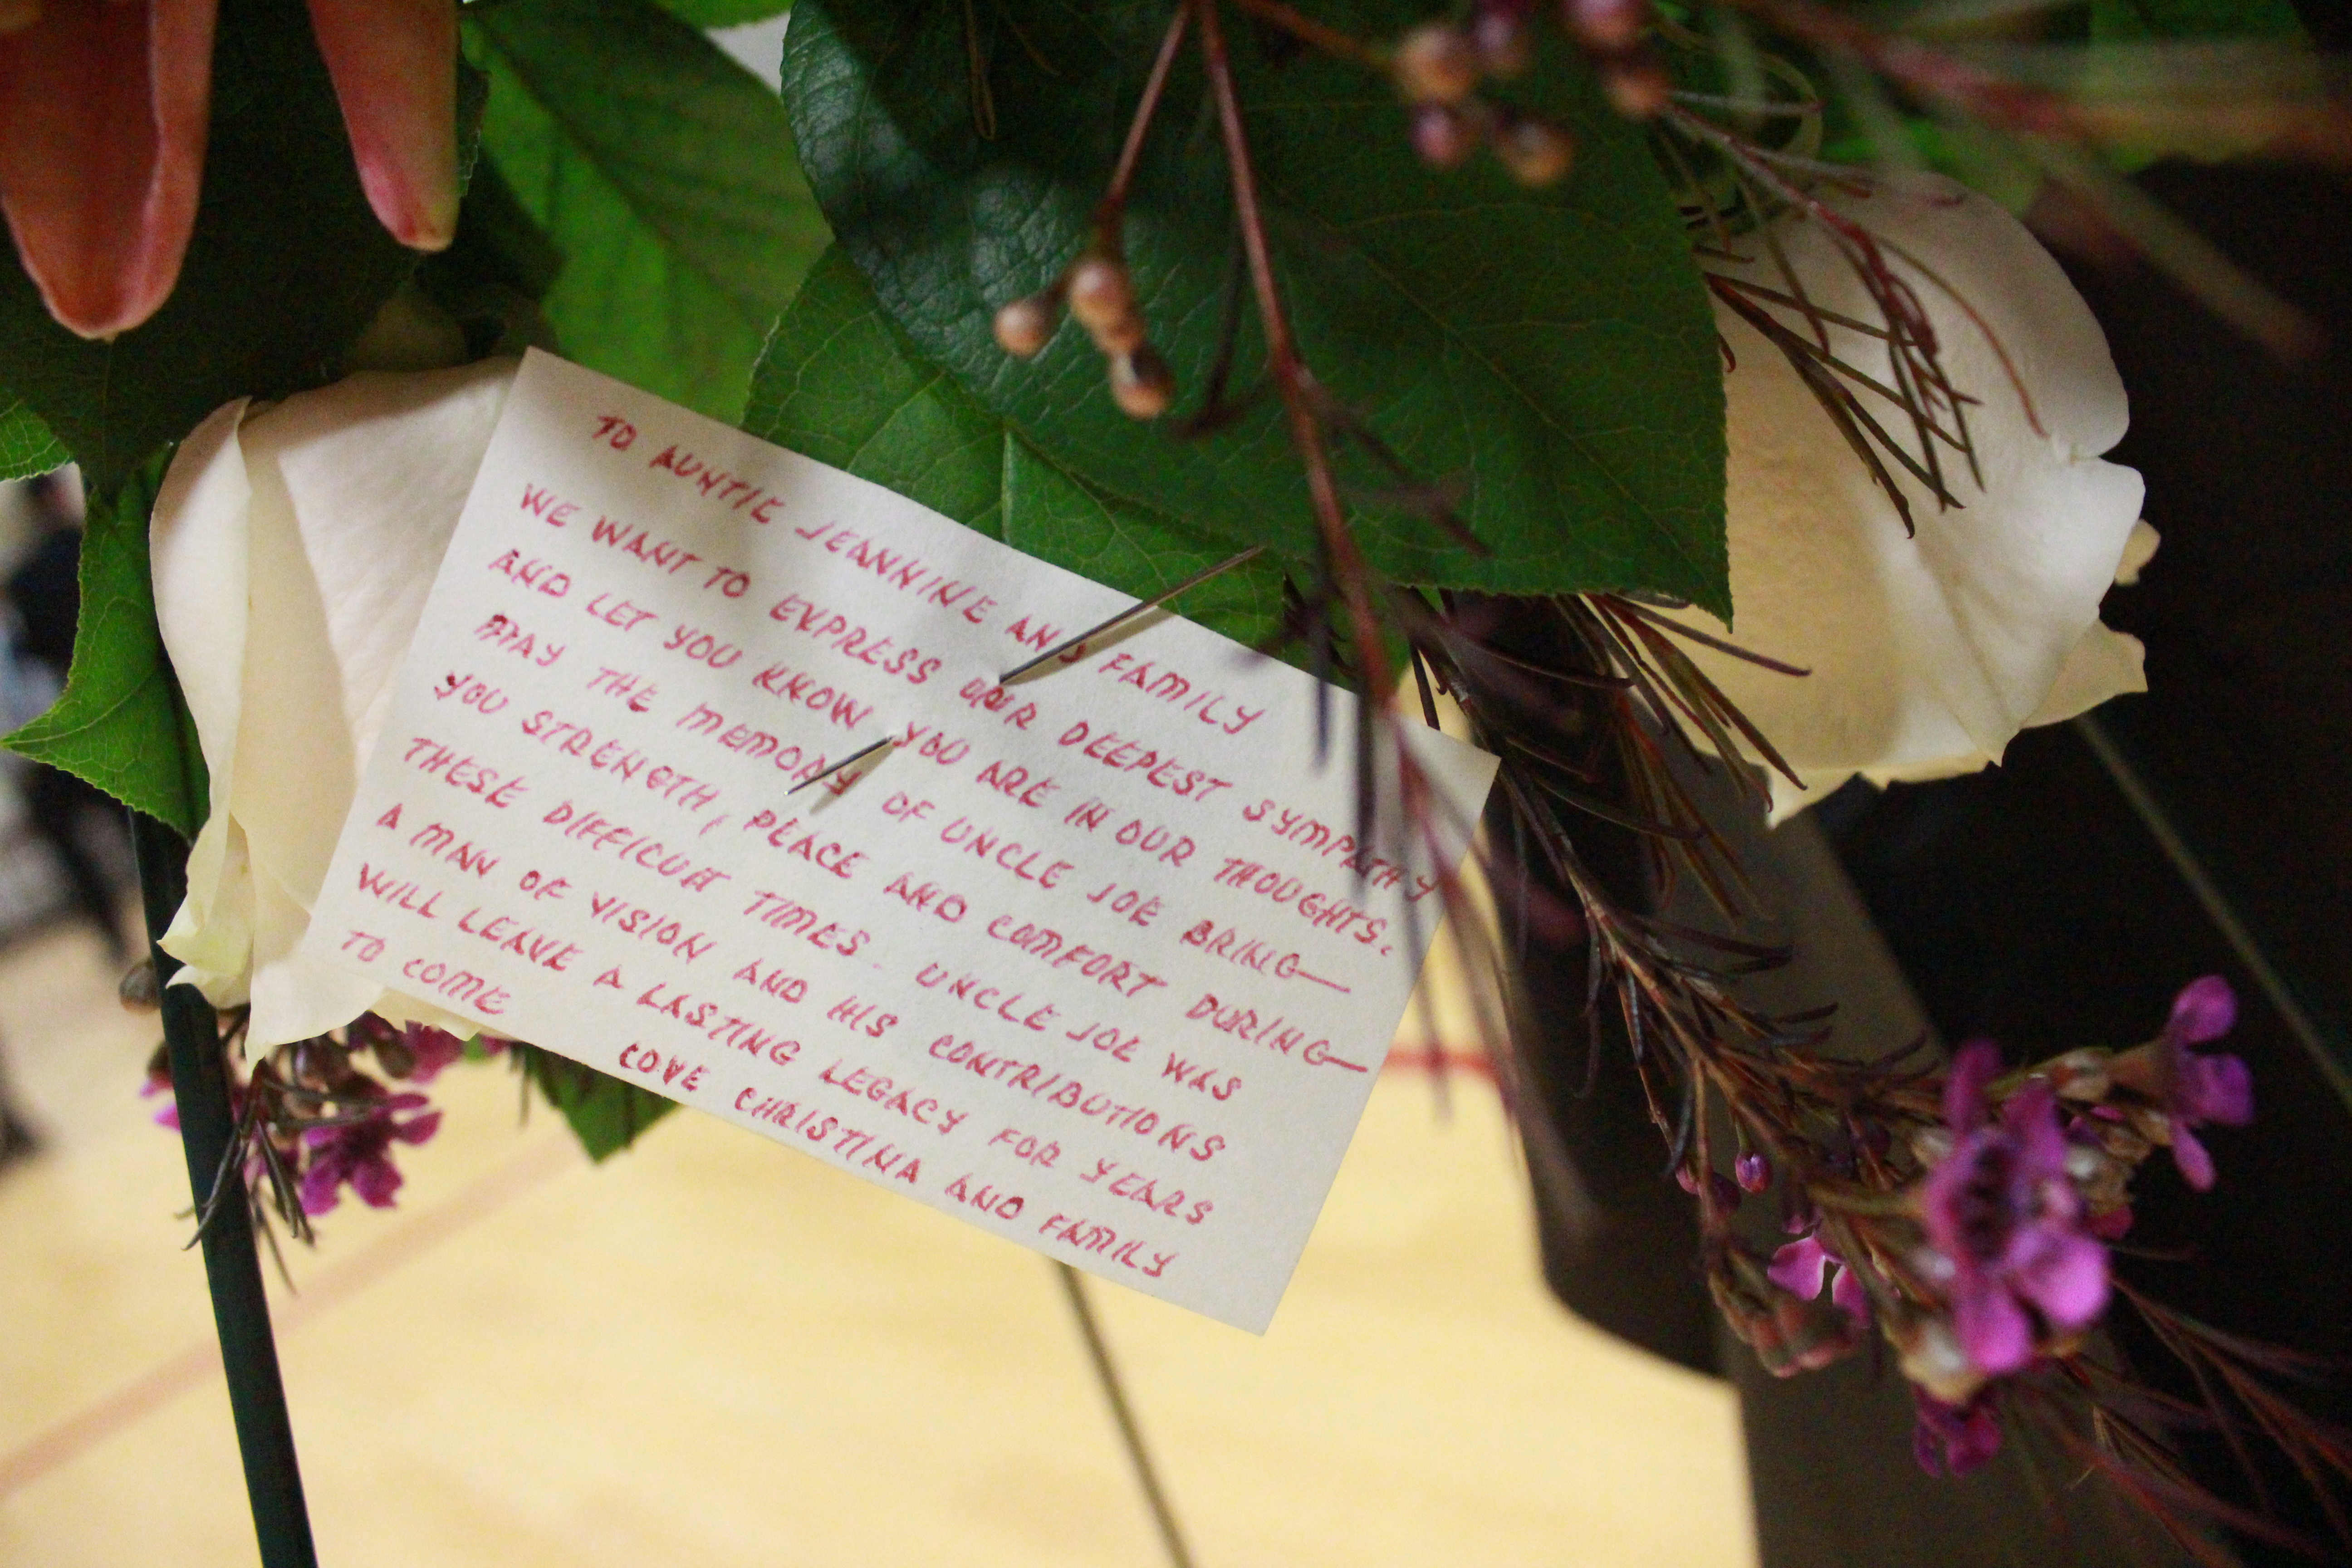 TO AUNTIE JEANNINE AND FAMILY
WE WANT TO EXPRESS OUR DEEPEST SYMPATHY
AND LET YOU KNOW YOU ARE IN OUR THOUGHTS.
MAY THE MEMORY OF UNCLE JOE BRING
YOU STRENGTH, PEACE AND COMFORT DURING
THESE DIFFICULT TIMES. UNCLE JOE WAS
A MAN OF VISION AND HIS CONTRIBUTIONS
WILL LEAVE A LASTING LEGACY FOR YEARS
TO COME
LOVE CHRISTINA AND FAMILY